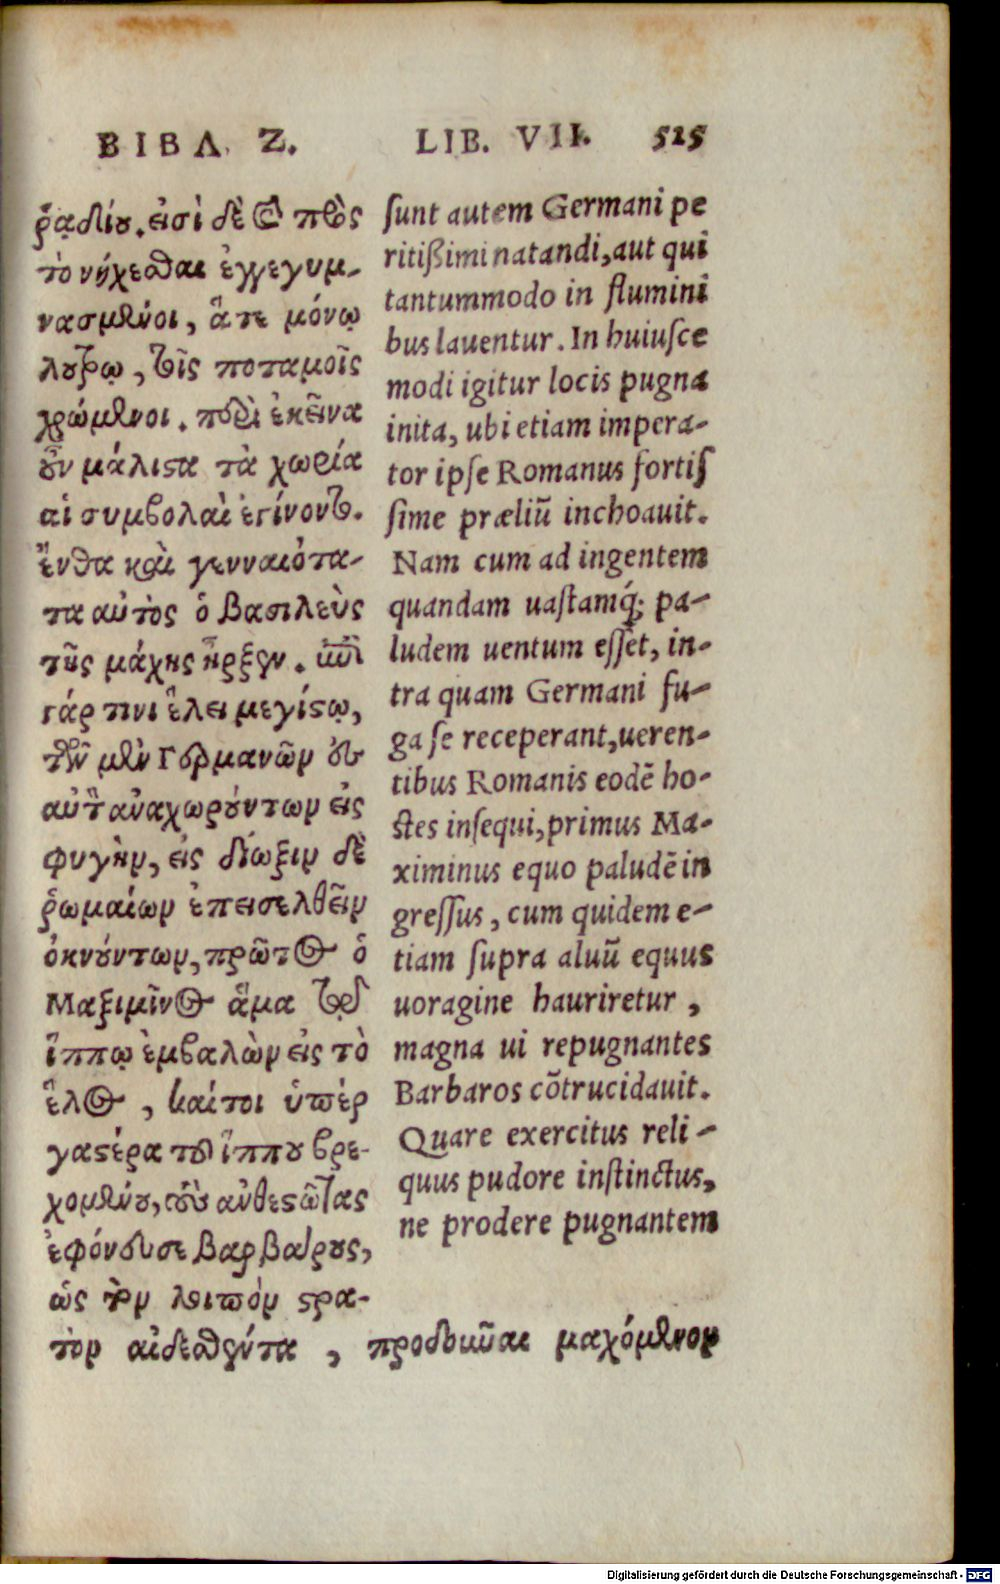 ΒΙΒΛ. Ζ.
ῥᾳδίου. εἰσὶ δὲ καὶ πρὸς
τὸ νήχεσθαι ἐγγεγυμ-
νασμένοι, ἅτε μόνῳ
λουτρῷ, τοῖς ποταμοῖς
χρώμενοι. περὶ ἐκεῖνα
οὖν μάλιστα τὰ χωρία
αἱ συμβολαὶ ἐγίνοντο.
ἔνθα καὶ γενναιότα-
τα αὐτὸς ὁ βασιλεὺς
τῆς μάχης ἦρξεν. ἐπὶ
γάρ τινι ἕλει μεγίστῳ,
τῶν μὲν Γερμανῶν ἐς
αὐτὸ ἀναχωρούντων εἰς
φυγὴν, εἰς δίωξιν δὲ
ῥωμαίων ἐπεισελθεῖν
ὀκνούντων, πρῶτος ὁ
Μαξιμῖνος ἅμα τῷ
ἵππῳ ἐμβαλὼν εἰς τὸ
ἕλος, καίτοι ὑπὲρ
γαστέρα τοῦ ἵππου βρε-
χομένου, τοὺς ἀνθεστῶτας
ἐφόνευσε βαρβάρους,
ὡς τὸν λοιπὸν στρα-
τὸν αἰδεσθέντα, προδοῦναι μαχόμενον
LIB. VII. 525
ſunt autem Germani pe
ritißimi natandi, aut qui
tantummodo in flumini
bus lauentur. In huiuſce
modi igitur locis pugna
inita, ubi etiam impera-
tor ipſe Romanus fortiſ
ſime præliũ inchoauit.
Nam cum ad ingentem
quandam uaſtamq́; pa-
ludem uentum eſſet, in-
tra quam Germani fu-
ga ſe receperant, ueren-
tibus Romanis eodẽ ho-
ſtes inſequi, primus Ma-
ximinus equo paludẽ in
greſſus, cum quidem e-
tiam ſupra aluũ equus
uoragine hauriretur,
magna ui repugnantes
Barbaros cõtrucidauit.
Quare exercitus reli-
quus pudore inſtinctus,
ne prodere pugnantem
Digitalisierung gefördert durch die Deutsche Forschungsgemeinschaft - DFG